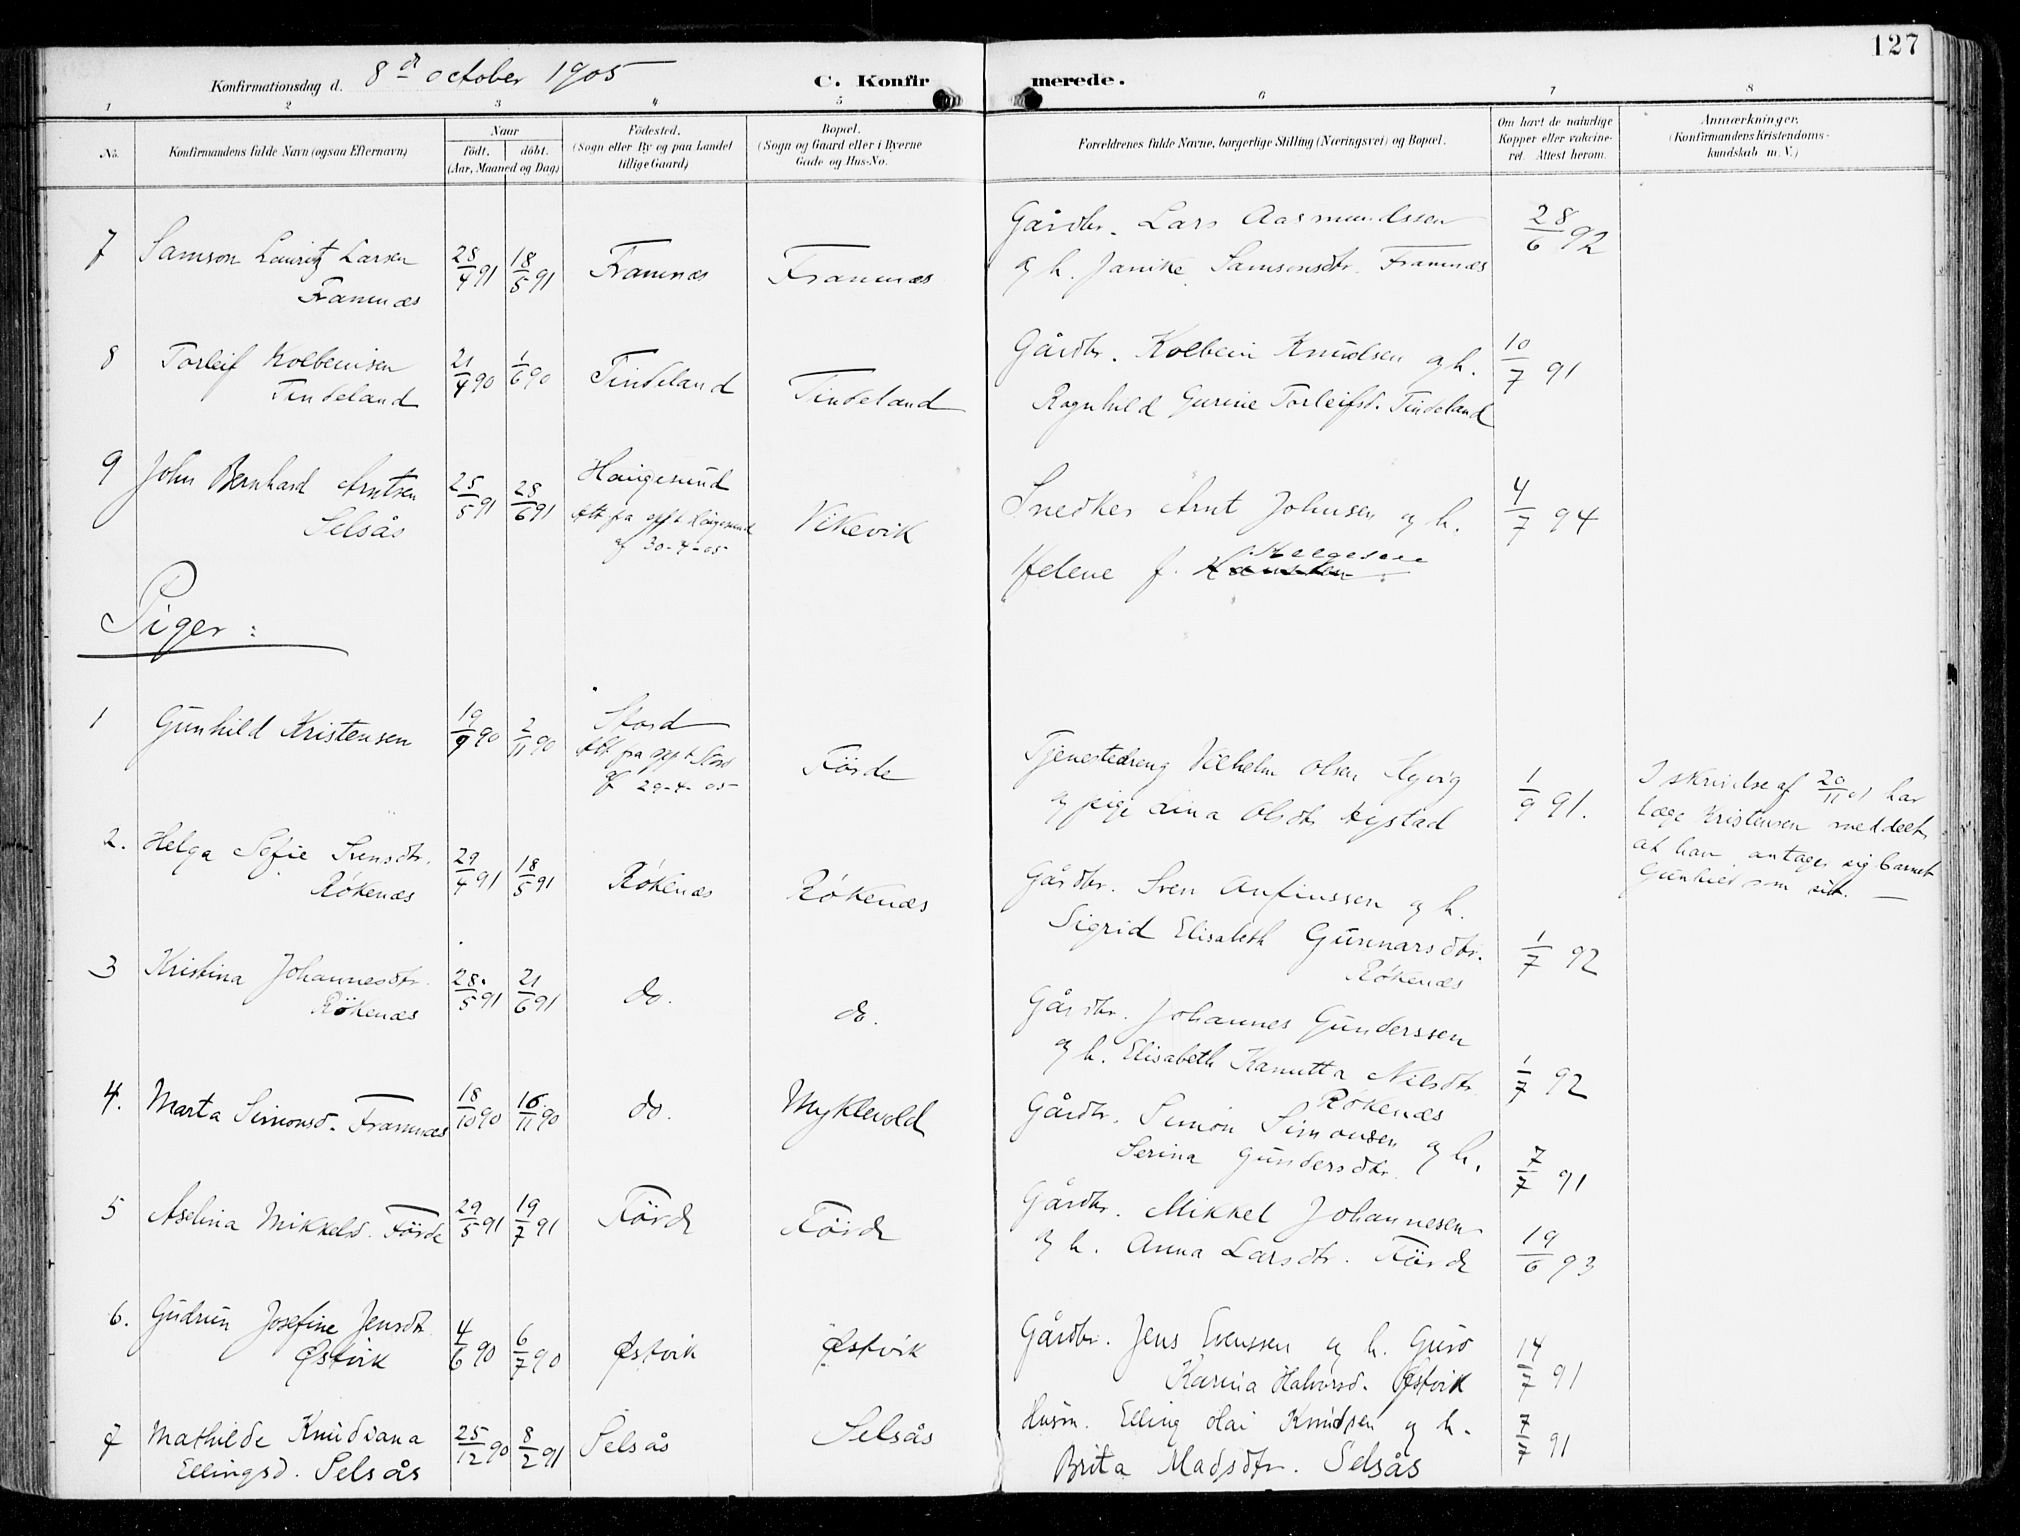 127
Konfirmationsdag d. 8de october 1905 C. Konfirmerede.
1 2 3 4 5 6 7 8
No. Konfirmandens fulde Navn (ogsaa Efternavn) Naar født. døbt. (Aar, Maaned og Dag) Fødested. (Sogn eller By og paa Landet tillige Gaard) Bopæl. (Sogn og Gaard eller i Byerne Gade og Hus-No. Forældrenes fulde Navne, borgerlige Stilling (Næringsvei) og Bopæl. Om havt de naturlige Kopper eller vaccineret. Attest herom. Anmærkninger. (Konfirmandens Kristendomskundskab m. V.)
7 Samson Lauritz Larsen 28/4 91 18/5 91 Framnæs Framnæs Gårdbr. Lars Aasmundssen 28/6 92
Framnæs og h. Janike Samsonsdtr. Framnæs
8 Torleif Kolbeinsen 21/4 90 1/6 90 Tindeland Tindeland Gårdbr. Kolbein Knudsen og h. 10/7 91
Tindeland Ragnhild Gurine Torleifsd. Tindeland
9 John Bernhard Arntsen 25/5 91 28/6 91 Haugesund Vikevik Snedker Arnt Johnsen og h. 4/7 94
Selsås Att fra Haugesund
af 30-4-05
Helene f.
Piger:
1 Gunhild Kristensen 19/9 90 2/11 90 Stord Førde Tjenestedreng Vilhelm Olsen 1/9 91. I skrivelse af 20/11 01 har
Att fra Stord og pige Lina Olsdtr læge Kristensen meddelt
af 29-4-05 at han antager sig barnet
Gunhild som sit.
2. Helga Sofie Svensdtr. 29/4 91 18/5 91 Røkenæs Røkenæs Gårdbr. Sven Anfinssen og h. 1/7 92
Røkenæs Sigrid Elisabeth Gunnarsdtr.
Røkenæs
3 Kristina Johannesdtr. 28/5 91 21/6 91 do. do. Gårdbr. Johannes Gunderssen 1/7 92
Røkenæs og h. Elisabeth Kanutta Nilsdtr.
Røkenæs
4. Marta Simonsd. Framnæs 18/10 90 16/11 90 do. Myklevold Gårdbr. Simon Simonsen og h. 7/7 91
Serina Gundersdtr.
5 Aselina Mikkelsd. Førde 29/5 91 19/7 91 Førde Førde Gårdbr. Mikkel Johannesen 19/6 93
og h. Anna Larsdtr. Førde
6. Gudrun Josefine Jensdtr 4/6 90 6/7 90 Østvik Østvik Gårdbr. Jens Evenssen og h. Guro 14/7 91
Østvik Karina Halvorsd. Østvik
7 Mathilde Knudiana 25/12 90 8/2 91 Selsås Selsås Husm. Elling Olai Knudsen og h. 7/7 91
Ellingsd. Selsås Brita Madsdtr. Selsås